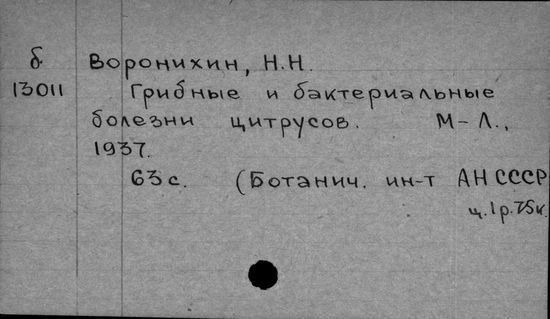 б
13011
Воронихин, Н.Н.
Грибные и бактериальные
болезни цитрусов. М-Л.,
1937.
63 с. (Ботанич. ин-т АН СССР
ц. 1 р. 75 к.